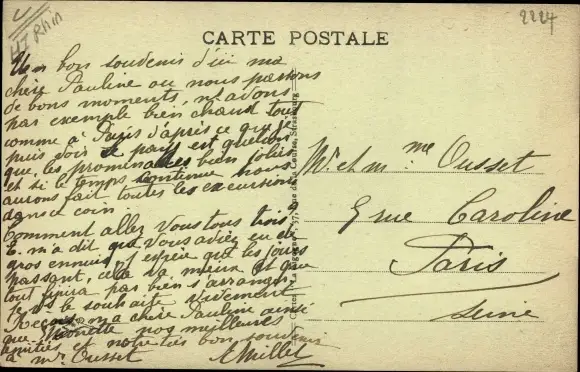 Ht Rhin
2224
CARTE POSTALE
Un bon souvenir d'ici ma
chère Pauline ou nous passons
de bons moments, n/ avons
par exemple bien chaud tout
comme à Paris d'après ce que je
puis voir le pays est
que, les bien jolies
et si le temps continue nous
aurons fait toutes les excursions
dans ce coin.
Comment allez vous tous trois
E. m'a dit que vous aviez eu de
gros ennuis j'espère que les jours
passant, cela va mieux et que
tout finira par bien s'arranger
je le souhaite vivement
Reçois ma chère Pauline ainsi
que nos meilleures
amitiés et notre très bon souvenir
à Mr. Ousset
AMillet
Mr et Mme Ousset
9 rue Caroline
Paris
Seine